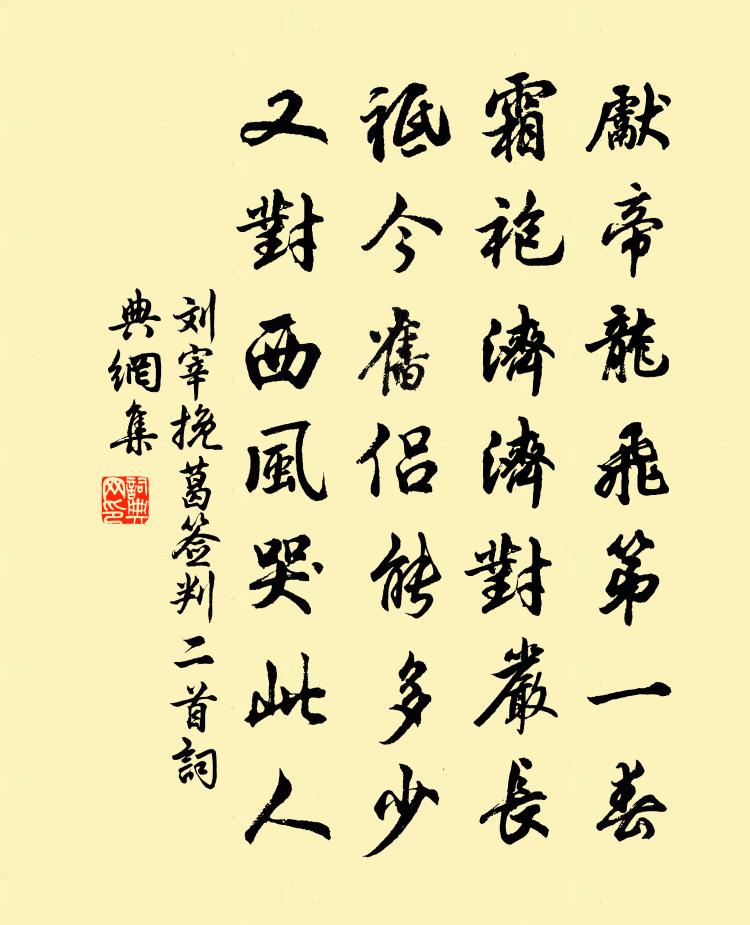 獻帝龍飛第一春
霜袍濟濟對嚴長
祗今舊侶能多少
又對西風哭此人
刘宰挽葛签判二首詞
典網集
詞典
网印